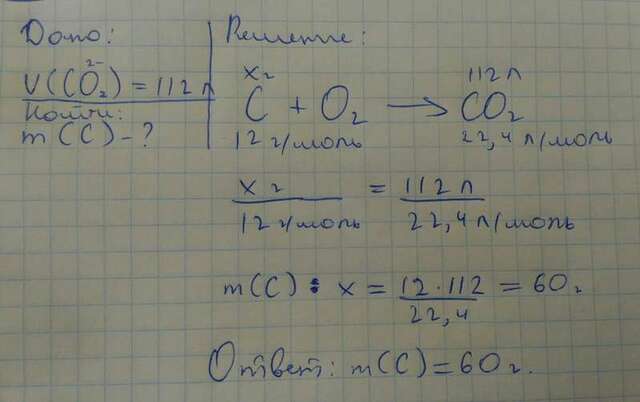 Дано:
V(CO₂²⁻) = 112 л
Найти:
m(C) - ?
Решение:
x г 112 л
C + O₂ → CO₂
12 г/моль 22,4 л/моль
x г / 12 г/моль = 112 л / 22,4 л/моль
m(C) : x = 12 · 112 / 22,4 = 60 г
Ответ: m(C) = 60 г.